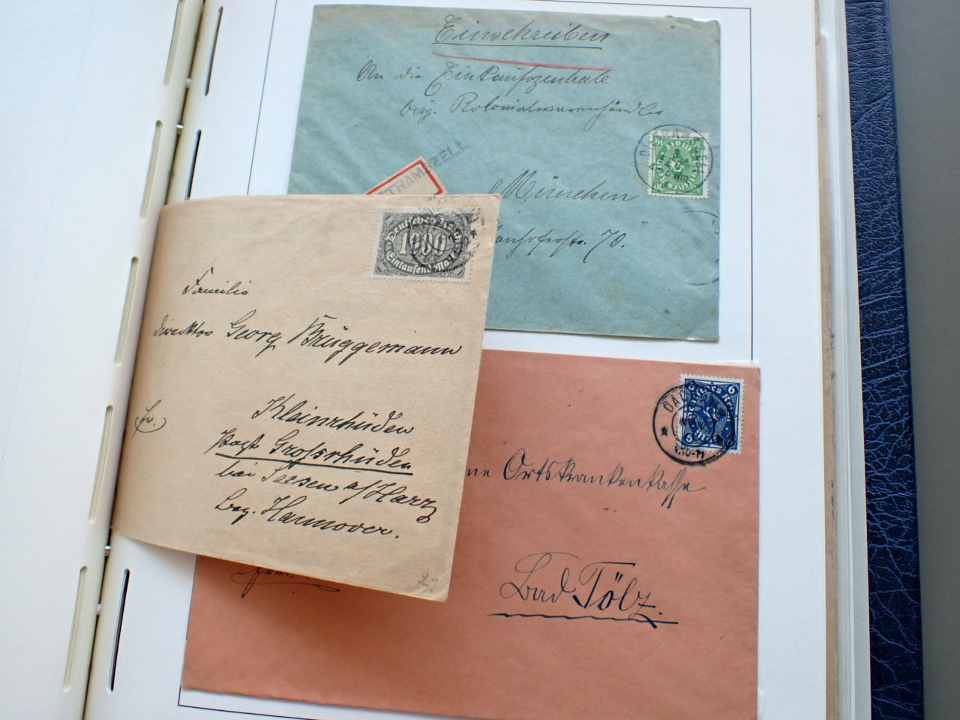 Einschreiben
An die Einkaufszentrale
bay. Kolonialwarenhändler
München
70.
TRAMZELL
Deutsches Reich
1000
Eintausend Mark
Familie
Direktor Georg Brüggemann
Kleinrhüden
Post Grossrhüden
bei Seesen a/Harz
bez. Hannover.
fr.
6
BAD
ne Ortskrankenkasse
Bad Tölz.